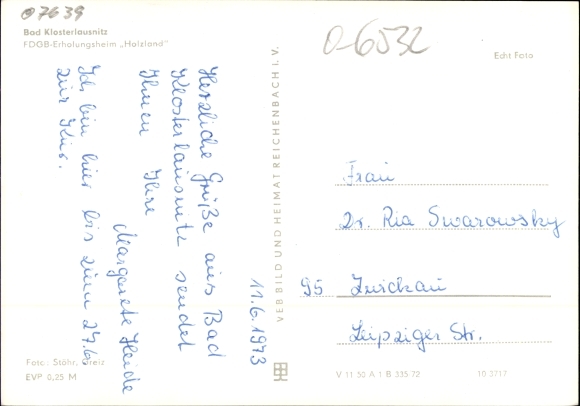 07639
Bad Klosterlausnitz
FDGB-Erholungsheim „Holzland"
Herzliche Grüße aus Bad
Klosterlausnitz sendet
Ihnen Ihre
Margarete Heide
Ich bin hier bis zum 27.6.
zur Kur.
11.6.1973
Foto: Stöhr, Greiz
EVP 0,25 M
VEB BILD UND HEIMAT REICHENBACH I. V.
0-6532
Echt Foto
Frau
Dr. Ria Swarowsky
95 Zwickau
Leipziger Str.
V 11 50 A 1 B 335/72
10 3717